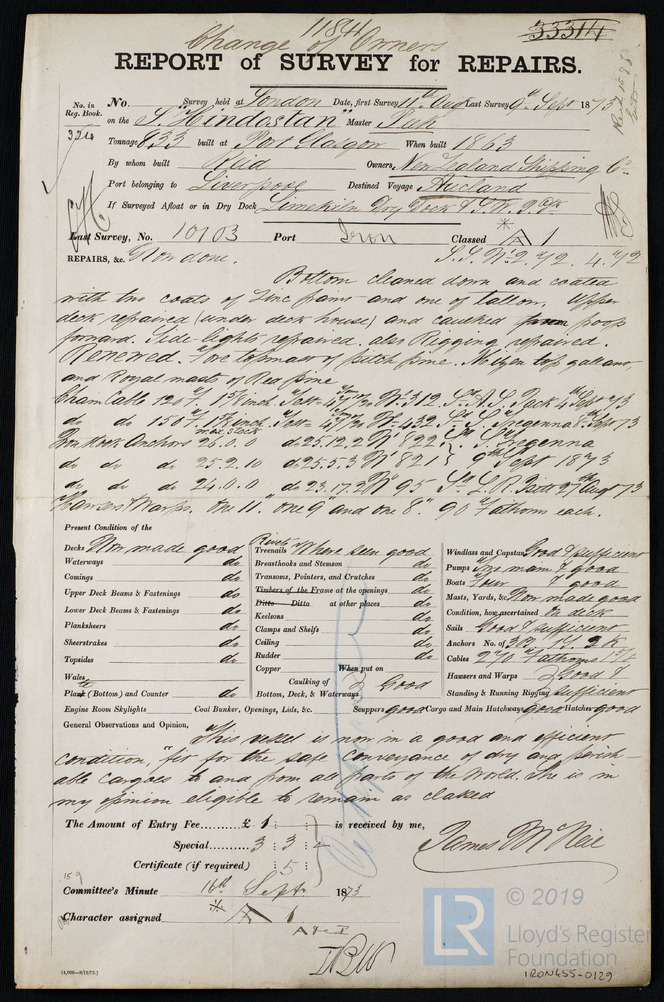 11841
33314
Change of Owners
REPORT of SURVEY for REPAIRS.
No. in Reg. Book. No. Survey held at London Date, first Survey 11th Aug Last Survey 9th Sept 1873
324 on the S. "Hindostan" Master
Tonnage 833 built at Port Glasgow When built 1863
By whom built Reid Owners New Zealand Shipping Co.
Port belonging to Liverpool Destined Voyage Aucland
If Surveyed Afloat or in Dry Dock Limekiln Dry Dock &
Last Survey, No. 10103 Port Iron Classed A 1
REPAIRS, &c. Now done. S.S. No. 2. 72. 4. 72
Bottom cleaned down and coated
with two coats of Zinc paint and one of tallow. Upper
deck repaired (under deck house) and caulked from poop
forward. Side lights repaired. also Rigging repaired.
Renewed. Fore topmast of pitch pine. Mizen top gallant
and Royal masts of Red pine
Chain Cable 120 1 inch No. 312 Jack 4 Sept 73
do do 150 inch No. 432 Tregenna Sept 73
Anchors 26.0.0 do 25.12.2 No. 822 J. Tregenna
do do do 25.2.10 do 25.5.3 No. 821 9th Sept 1873
do do do 24.0.0 do 23.17.2 No. 95 27th Augt 73
Hawsers & Warps. One 11" one 9" and one 8" 90 Fathoms each.
Present Condition of the
Decks Now made good
Waterways do
Comings do
Upper Deck Beams & Fastenings do
Lower Deck Beams & Fastenings do
Planksheers do
Sheerstrakes do
Topsides do
Wales
Plank (Bottom) and Counter do
Engine Room Skylights Coal Bunker, Openings, Lids, &c.
Rivets
Treenails Where seen good
Breasthooks and Stemson do
Transoms, Pointers, and Crutches do
Timbers of the Frame at the openings do
Ditto Ditto at other places do
Keelsons do
Clamps and Shelfs do
Ceiling do
Rudder do
Copper When put on
Caulking of Bottom, Deck, & Waterways Good
Scuppers good Cargo and Main Hatchways good Hatches good
Windlass and Capstan Good & sufficient
Pumps main & good
Boats Four & good
Masts, Yards, &c. Now made good
Condition, how ascertained On deck
Sails Good & sufficient
Anchors No. of 3B. 1S. 2K
Cables 270 Fathoms
Hawsers and Warps Good &
Standing & Running Rigging sufficient
General Observations and Opinion,
This vessel is now in a good and efficient
condition, "fit for the safe conveyance of dry and perish-
able cargoes to and from all parts of the World. She is in
my opinion eligible to remain as classed
The Amount of Entry Fee £ 1 : : is received by me,
Special 3 : 3 :
Certificate (if required) : 5 :
James McNeil
Committee's Minute 16th Septr 1873
Character assigned A 1
A & I
(4,000—9/12/72.)
© 2019
LR Lloyd's Register
Foundation
IRON455-0129